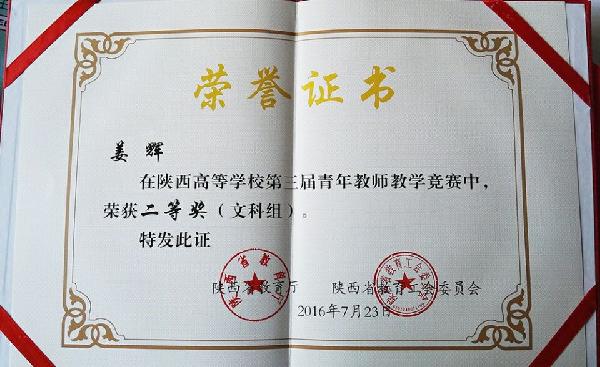 荣誉证书
姜辉
在陕西高等学校第三届青年教师教学竞赛中,
荣获二等奖(文科组)。
特发此证
陕西省教育厅 陕西省教育工会委员会
2016年7月23日
陕西省教育厅